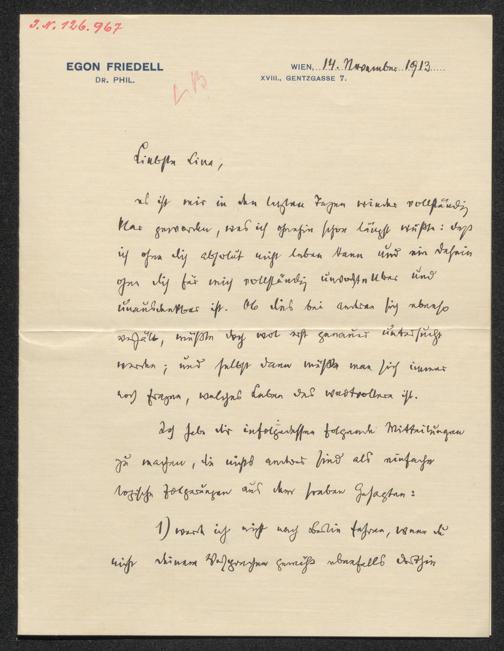 J.N. 126.967
EGON FRIEDELL
DR. PHIL.
WIEN, 14. November 1913
XVIII., GENTZGASSE 7.
LB
Liebste Lina,
es ist mir in den letzten Tagen wieder vollständig
klar geworden, was ich ohnehin schon längst wußte: daß
ich ohne dich absolut nicht leben kann und ein Dasein
ohne dich für mich vollständig undenkbar und
unausdenkbar ist. Ob dies bei anderen sich ebenso
verhält, müßte doch wol erst genauer untersucht
werden; und selbst dann müßte man sich immer
noch fragen, welches Leben das wertvollere ist.
Ich habe dir infolgedessen folgende Mitteilungen
zu machen, die nichts anderes sind als einfache
logische Folgerungen aus dem soeben Gesagten:
1) werde ich nicht nach Berlin fahren, wenn du
nicht deinem Versprechen gemäß ebenfalls dorthin